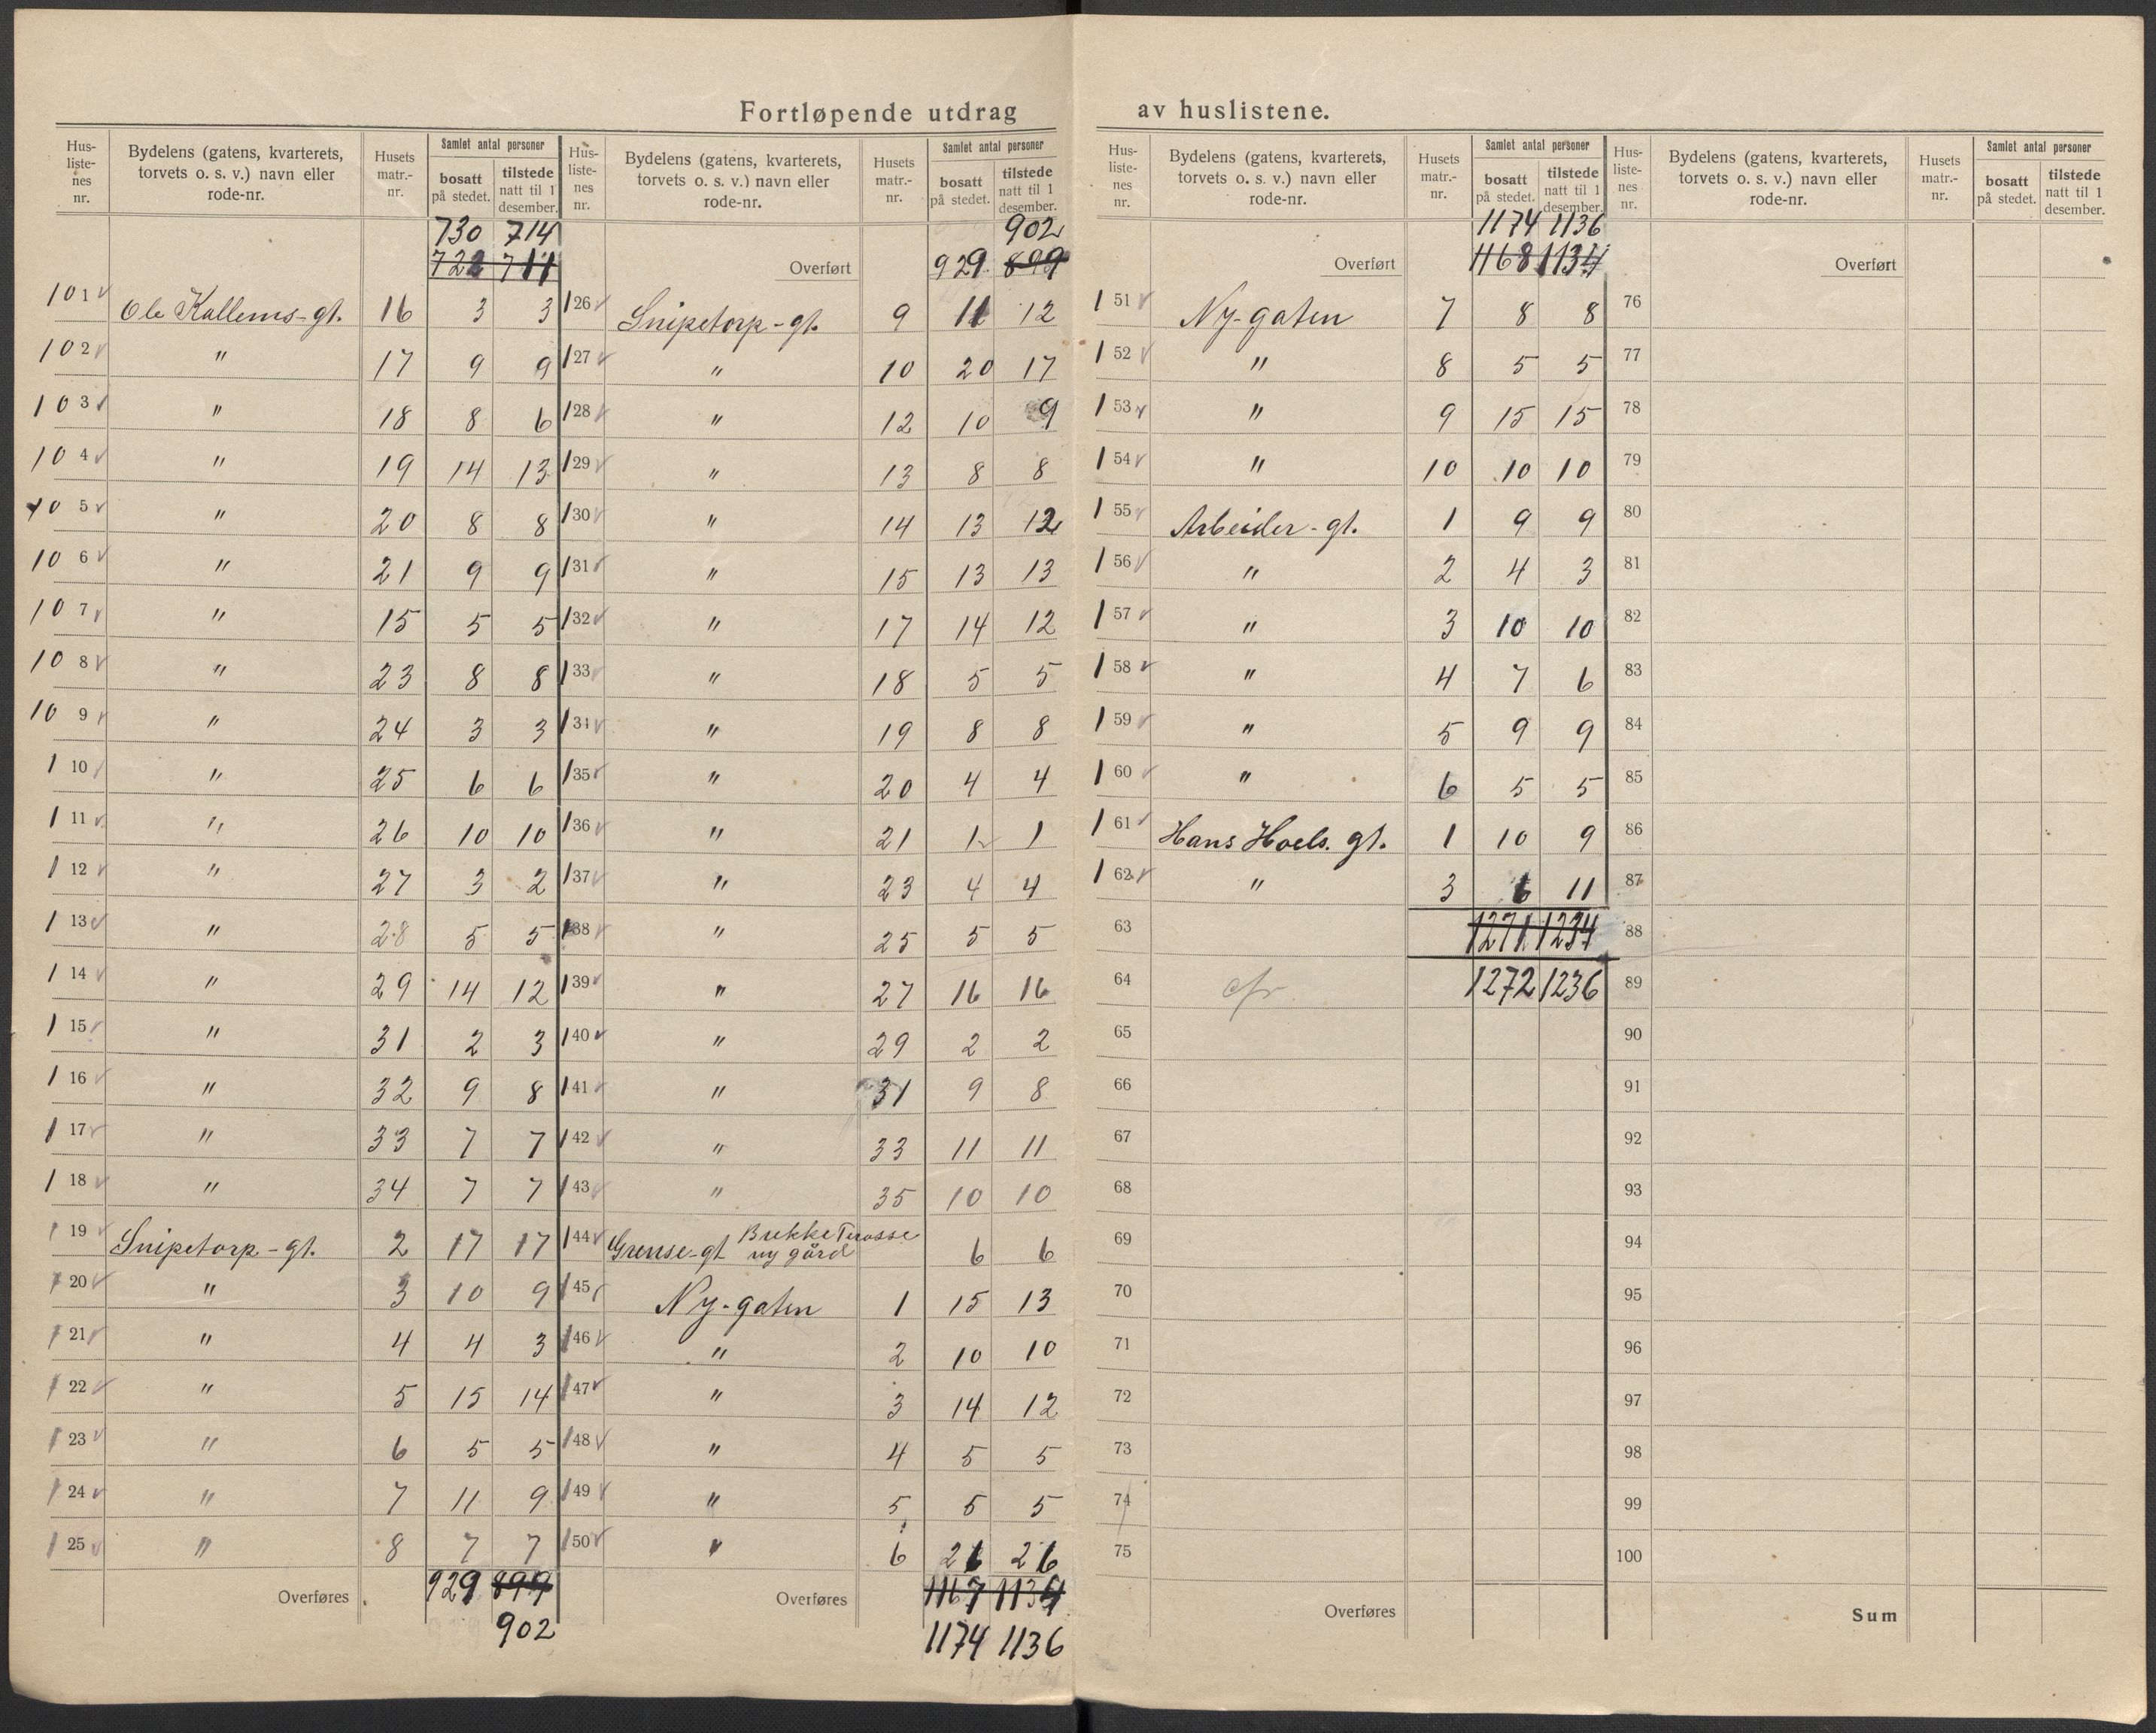 Fortløpende utdrag av huslistene.
Hus-listenes nr. | Bydelens (gatens, kvarterets, torvets o. s. v.) navn eller rode-nr. | Husets matr.-nr. | Samlet antal personer | bosatt på stedet. | tilstede natt til 1 desember.
730 714
722 711
101 Ole Kallems-gt. 16 3 3
102 " 17 9 9
103 " 18 8 6
104 " 19 14 13
105 " 20 8 8
106 " 21 9 9
107 " 15 5 5
108 " 23 8 8
109 " 24 3 3
110 " 25 6 6
111 " 26 10 10
112 " 27 3 2
113 " 28 5 5
114 " 29 14 12
115 " 31 2 3
116 " 32 9 8
117 " 33 7 7
118 " 34 7 7
119 Snipetorp-gt. 2 17 17
120 " 3 10 9
121 " 4 4 3
122 " 5 15 14
123 " 6 5 5
124 " 7 11 9
125 " 8 7 7
Overføres 929 899
902
Hus-listenes nr. | Bydelens (gatens, kvarterets, torvets o. s. v.) navn eller rode-nr. | Husets matr.-nr. | Samlet antal personer | bosatt på stedet. | tilstede natt til 1 desember.
902
Overført 929 899
126 Snipetorp-gt. 9 11 12
127 " 10 20 17
128 " 12 10 9
129 " 13 8 8
130 " 14 13 12
131 " 15 13 13
132 " 17 14 12
133 " 18 5 5
134 " 19 8 8
135 " 20 4 4
136 " 21 1 1
137 " 23 4 4
138 " 25 5 5
139 " 27 16 16
140 " 29 2 2
141 " 31 9 8
142 " 33 11 11
143 " 35 10 10
144 Grense-gt Brekke Terasse ny gård 6 6
145 Ny-gaten 1 15 13
146 " 2 10 10
147 " 3 14 12
148 " 4 5 5
149 " 5 5 5
150 " 6 26 26
Overføres 1167 1134
1174 1136
Hus-listenes nr. | Bydelens (gatens, kvarterets, torvets o. s. v.) navn eller rode-nr. | Husets matr.-nr. | Samlet antal personer | bosatt på stedet. | tilstede natt til 1 desember.
1174 1136
Overført 1168 1134
151 Ny-gaten 7 8 8
152 " 8 5 5
153 " 9 15 15
154 " 10 10 10
155 Arbeider-gt. 1 9 9
156 " 2 4 3
157 " 3 10 10
158 " 4 7 6
159 " 5 9 9
160 " 6 5 5
161 Hans Hoels. gt. 1 10 9
162 " 3 6 11
63 1271 1234
64 cfr 1272 1236
65
66
67
68
69
70
71
72
73
74
75
Overføres
Hus-listenes nr. | Bydelens (gatens, kvarterets, torvets o. s. v.) navn eller rode-nr. | Husets matr.-nr. | Samlet antal personer | bosatt på stedet. | tilstede natt til 1 desember.
Overført
76
77
78
79
80
81
82
83
84
85
86
87
88
89
90
91
92
93
94
95
96
97
98
99
100
Sum